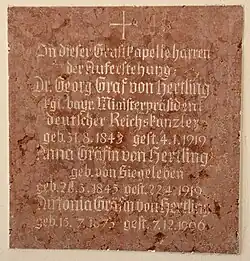 In dieser Gruftkapelle harren
der Auferstehung:
Dr. Georg Graf von Hertling
kgl. bayr. Ministerpräsident
deutscher Reichskanzler
geb. 31.8.1843 gest. 4.1.1919
Anna Gräfin von Hertling
geb. von Biegeleben
geb. 28.3.1845 gest. 22.4.1919
Antonia Gräfin von Hertling
geb. 15.7. gest. 7.12.